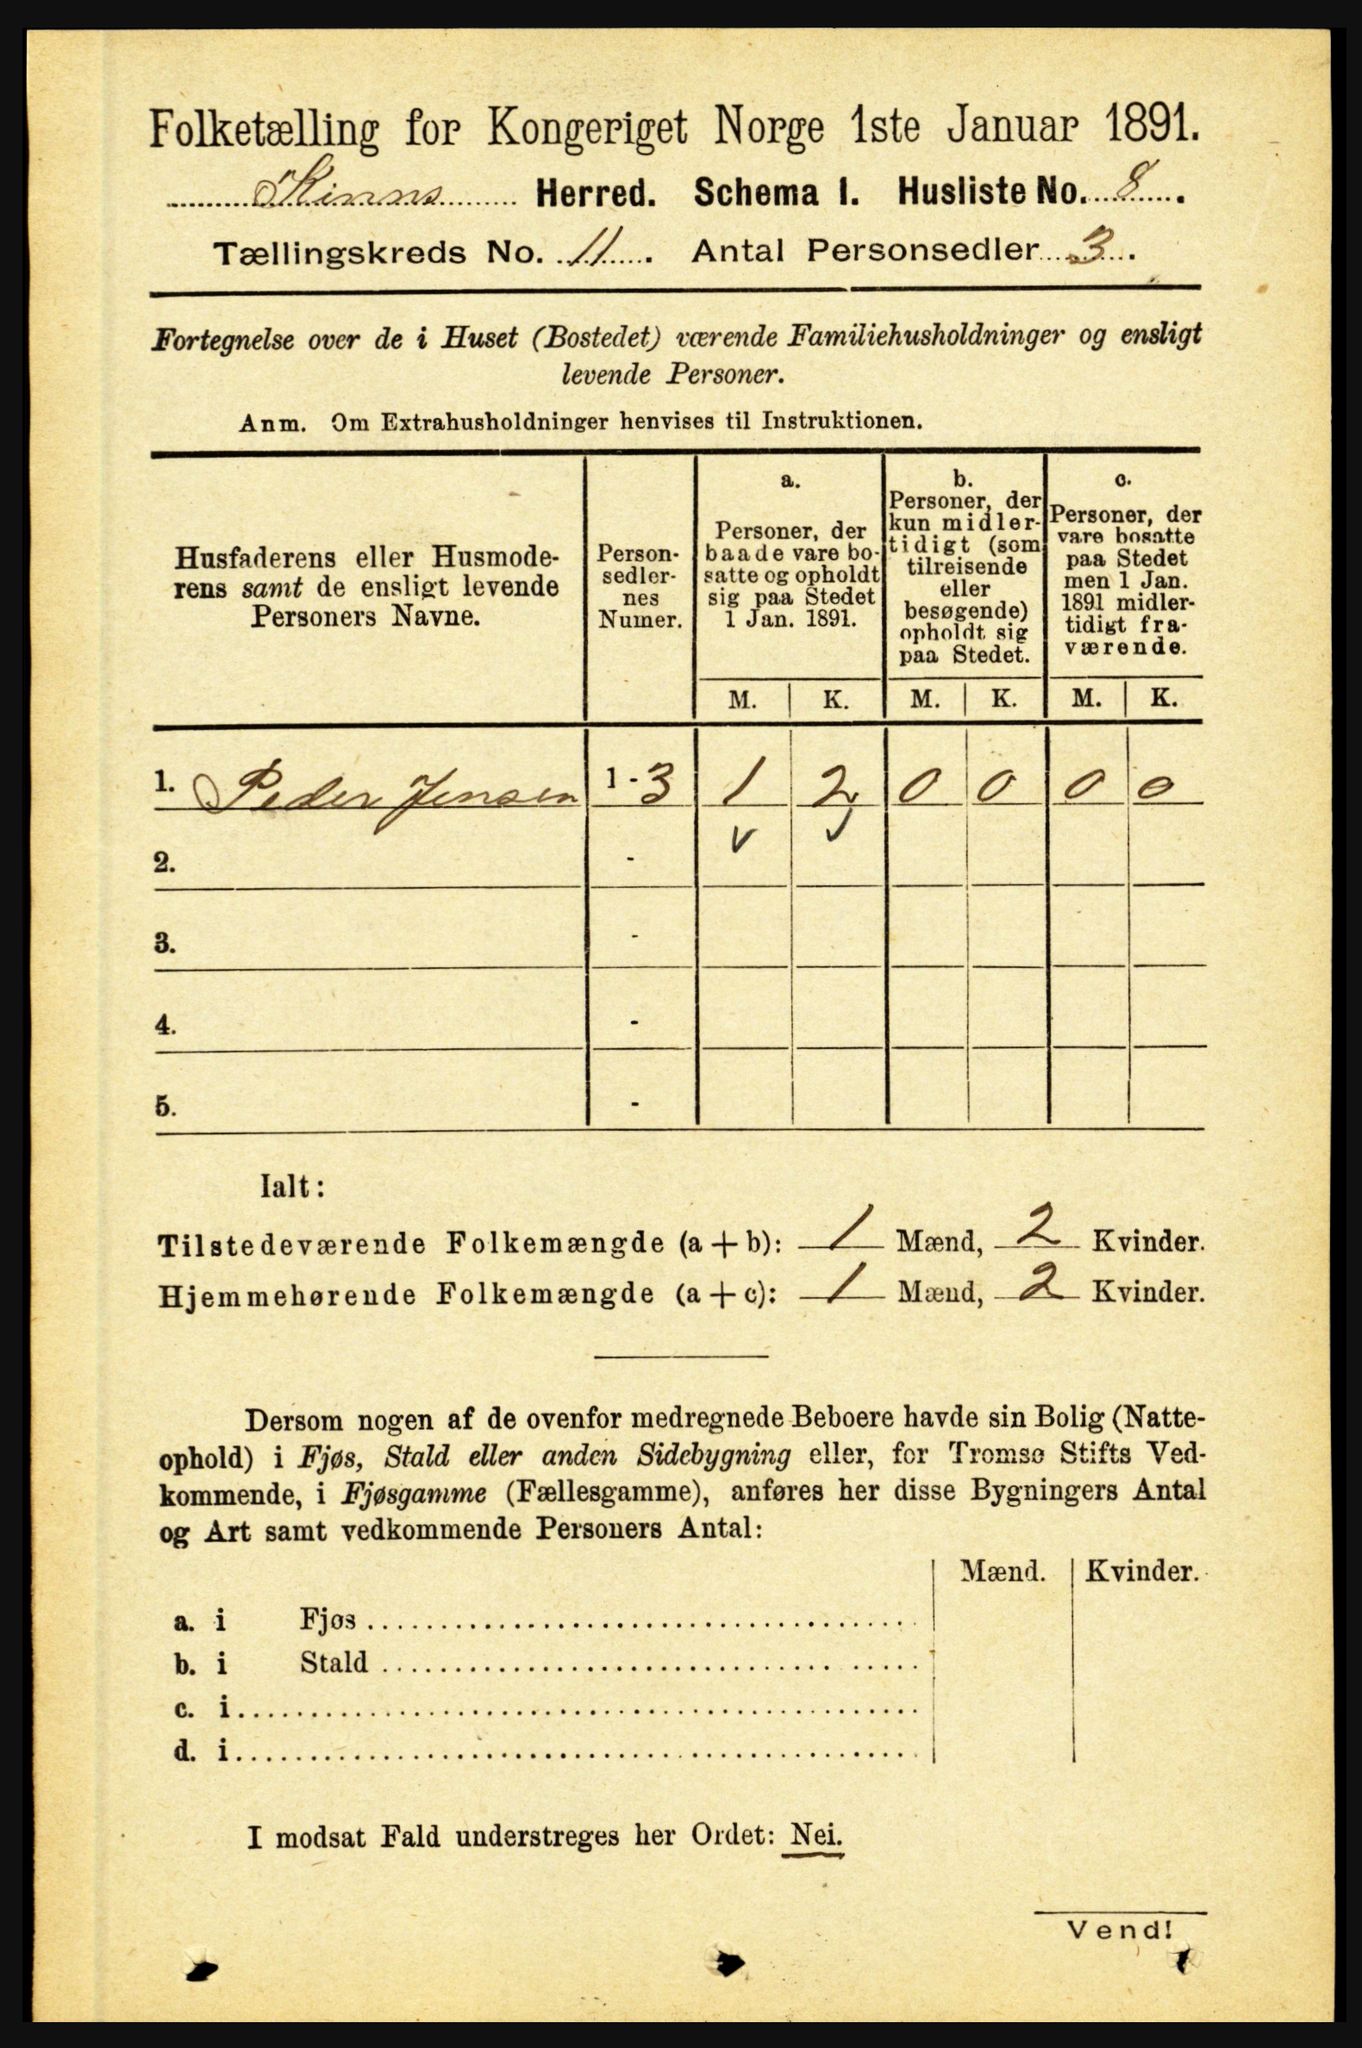 Folketælling for Kongeriget Norge 1ste Januar 1891.
Kinns Herred. Schema I. Husliste No. 8.
Tællingskreds No. 11. Antal Personsedler 3.
Fortegnelse over de i Huset (Bostedet) værende Familiehusholdninger og ensligt
levende Personer.
Anm. Om Extrahusholdninger henvises til Instruktionen.
Husfaderens eller Husmode-
rens samt de ensligt levende
Personers Navne.
Person-
sedler-
nes
Numer.
a.
Personer, der
baade vare bo-
satte og opholdt
sig paa Stedet
1 Jan. 1891.
b.
Personer, der
kun midler-
tidigt (som
tilreisende
eller
besøgende)
opholdt sig
paa Stedet.
c.
Personer, der
vare bosatte
paa Stedet
men 1 Jan.
1891 midler-
tidigt fra-
værende.
M. K. M. K. M. K.
1. Peder Jensen 1 - 3 1 2 0 0 0 0
2. -
3. -
4. -
5. -
Ialt:
Tilstedeværende Folkemængde (a + b): 1 Mænd, 2 Kvinder.
Hjemmehørende Folkemængde (a + c): 1 Mænd, 2 Kvinder.
Dersom nogen af de ovenfor medregnede Beboere havde sin Bolig (Natte-
ophold) i Fjøs, Stald eller anden Sidebygning eller, for Tromsø Stifts Ved-
kommende, i Fjøsgamme (Fællesgamme), anføres her disse Bygningers Antal
og Art samt vedkommende Personers Antal:
Mænd. Kvinder.
a. i Fjøs
b. i Stald
c. i
d. i
I modsat Fald understreges her Ordet: Nei.
Vend!